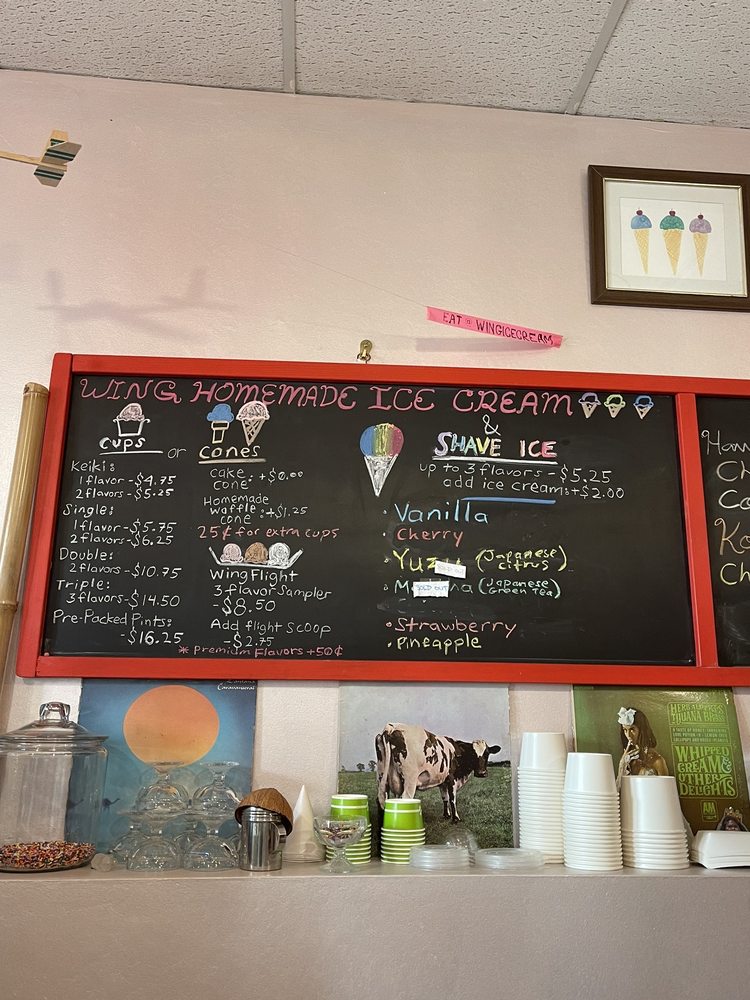 EAT WINGICECREAM
WING HOMEMADE ICE CREAM
&
SHAVE ICE
up to 3 flavors - $5.25
add ice cream: +$2.00
CUPS or CONES
Keiki:
1 flavor - $4.75
2 flavors - $5.25
Single:
1 flavor - $5.75
2 flavors - $6.25
Double:
2 flavors - $10.75
Triple:
3 flavors - $14.50
Pre-Packed Pints:
- $16.25
cake
cone: +$0.00
Homemade
waffle
cone: +$1.25
25¢ for extra cups
Wing Flight
3 flavor Sampler
- $8.50
Add flight scoop
- $2.75
* Premium Flavors +50¢
• Vanilla
• Cherry
• Yuzu (Japanese
citrus)
SOLD OUT
(Japanese
Green Tea)
SOLD OUT
• Strawberry
• Pineapple
Caravanserai
HERB ALPERT'S
TIJUANA BRASS
WHIPPED
CREAM &
OTHER
DELIGHTS
A&M